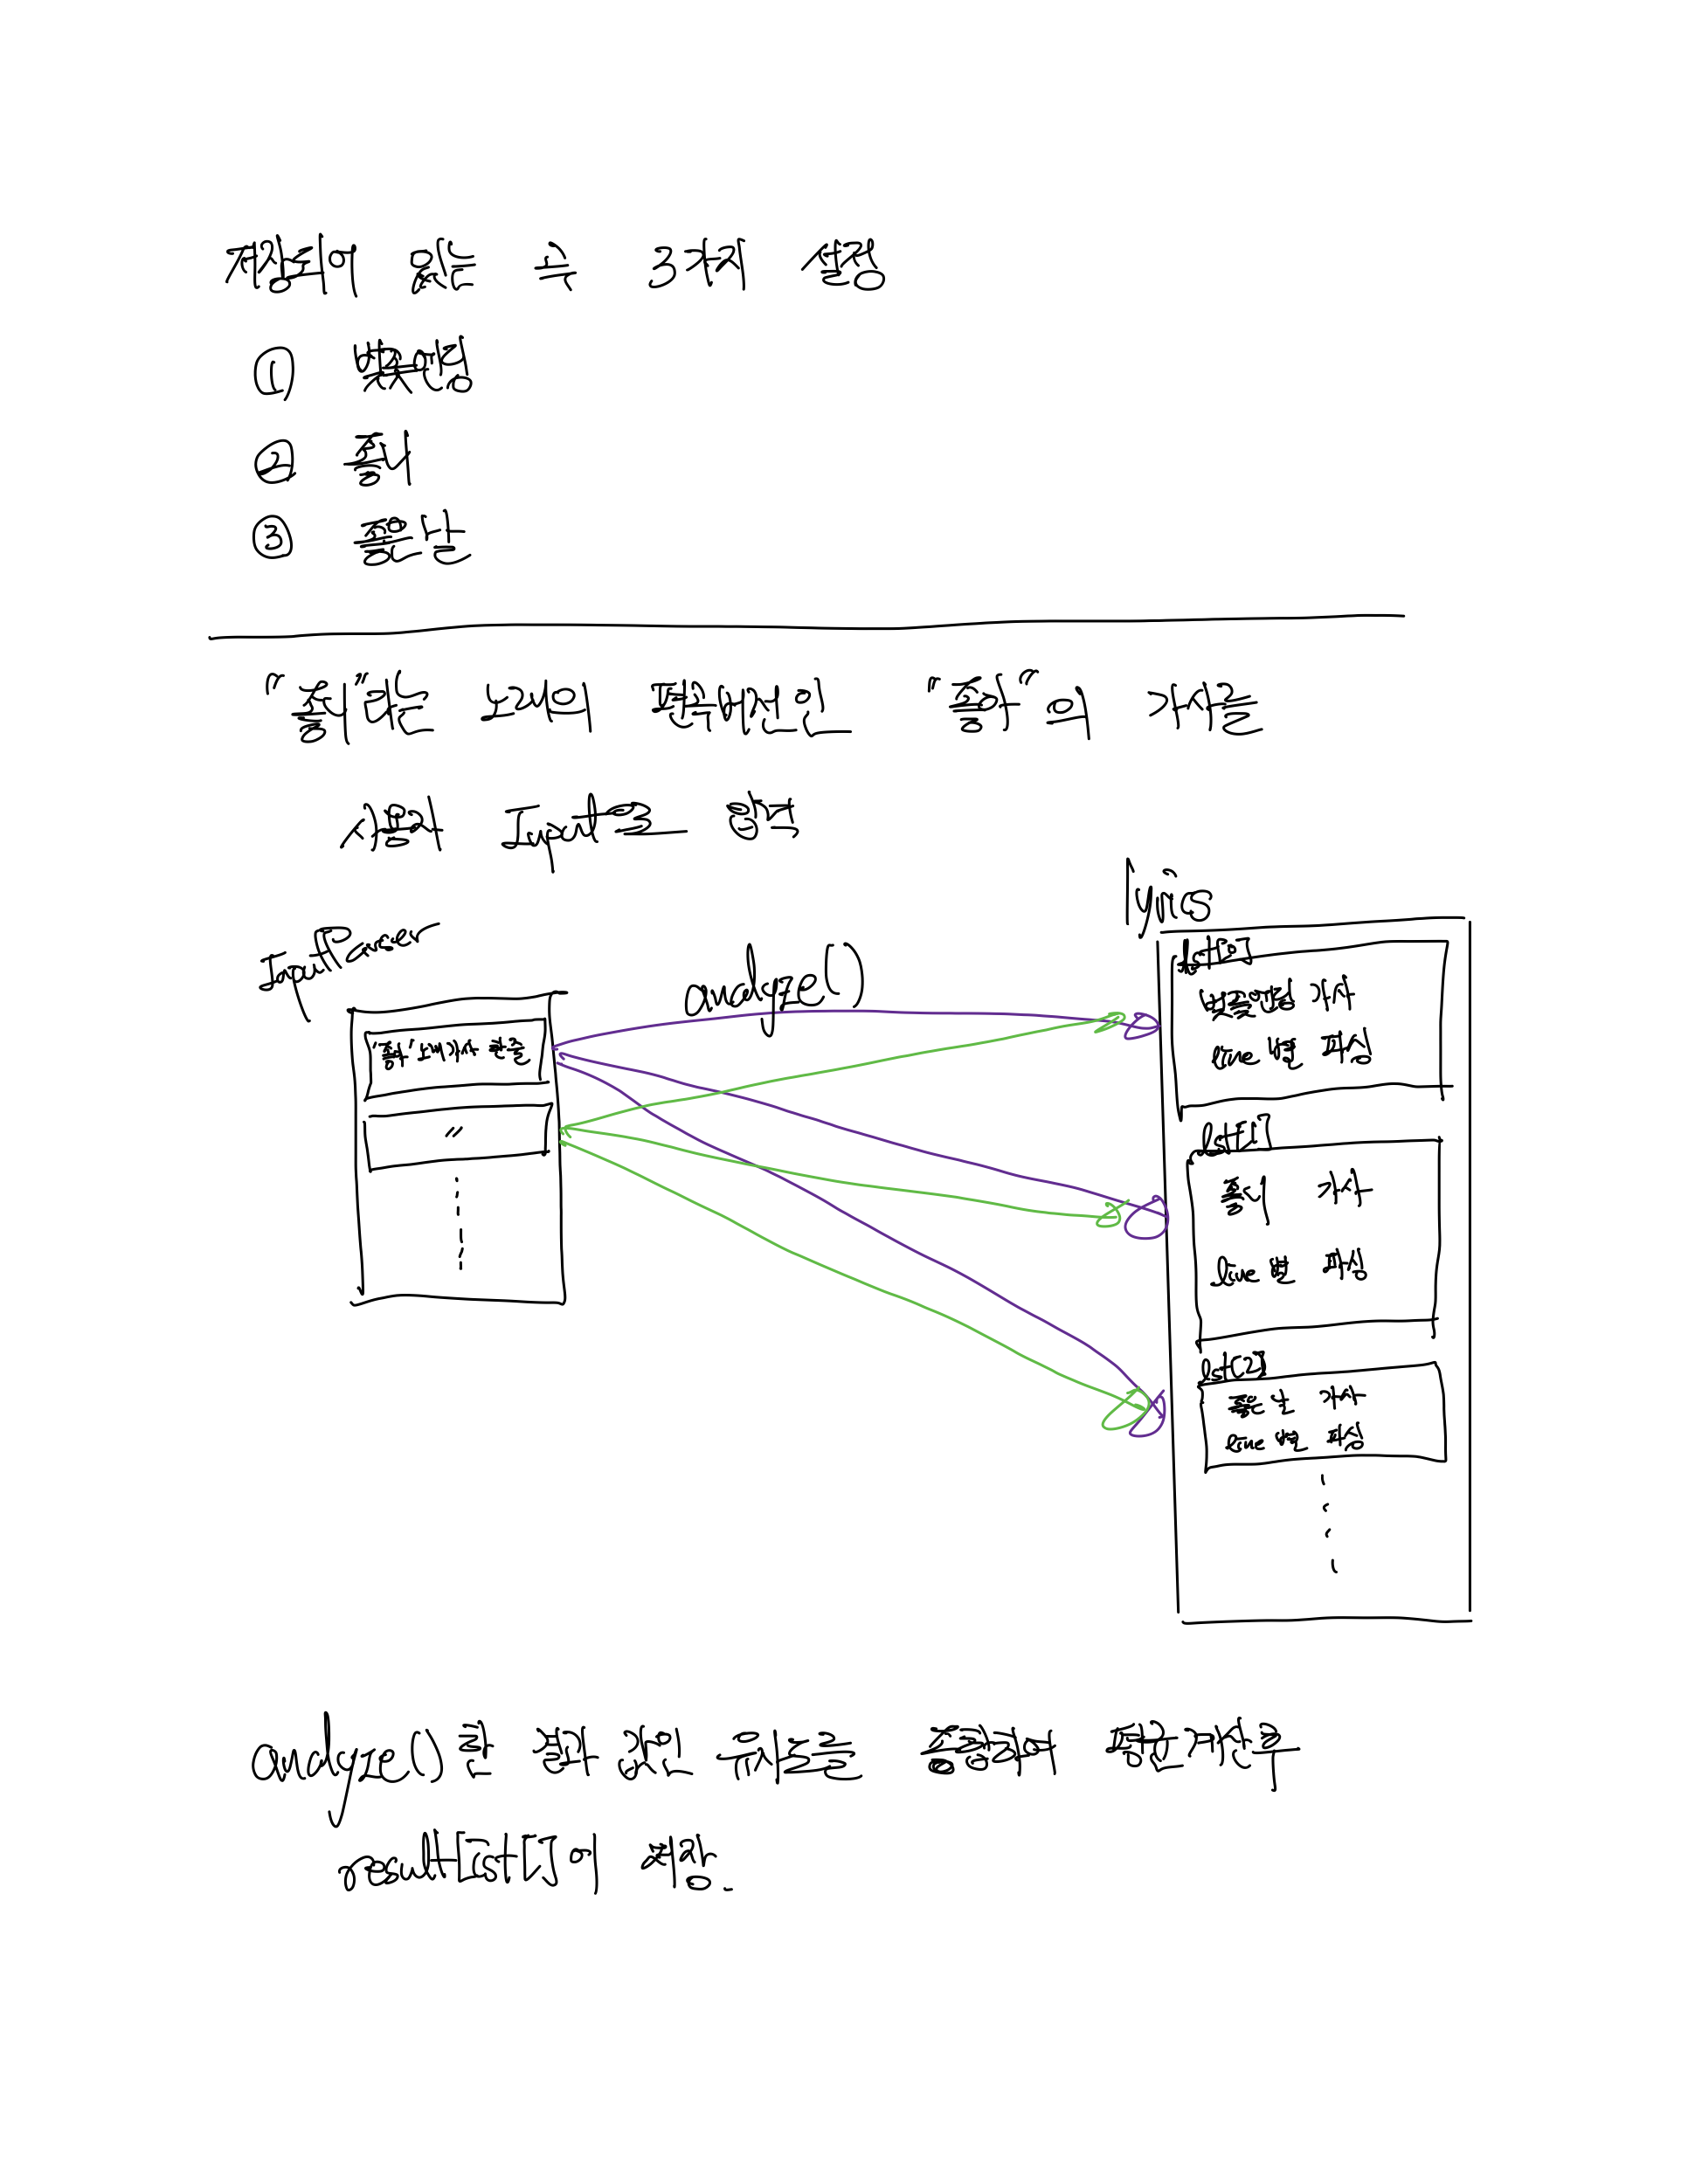 저장되어 있는 곡 3가지 설정
① 벚꽃엔딩
② 좋니
③ 좋은 날
"좋니"라는 노래의 편곡버전인 "좋아"의 가사를
사용자 Input으로 입력
InputParser
"좋아" 노래 가사 한 줄
〃
analyze()
lyrics
lst[0]
벚꽃엔딩 가사
line 별 파싱
lst[1]
좋니 가사
line 별 파싱
lst[2]
좋은 날 가사
line 별 파싱
analyze() 한 결과 값인 유사도를 종합하여 평균 계산 후
resultList[]에 저장.